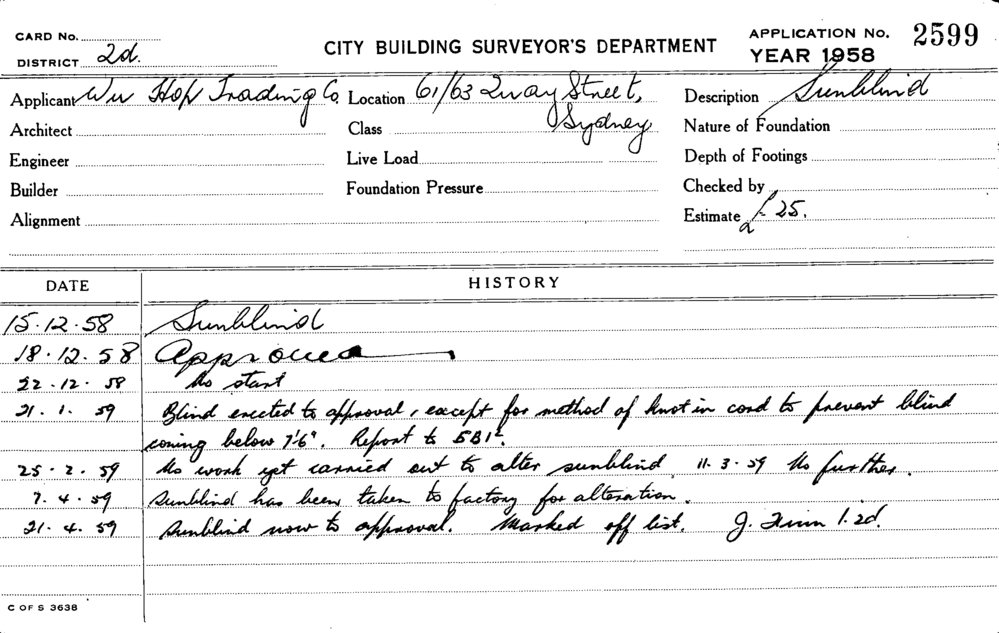 CARD No.
DISTRICT 2d.
CITY BUILDING SURVEYOR'S DEPARTMENT
APPLICATION No. 2599
YEAR 1958
Applicant Wu Hop Trading Co Location 61/63 Quay Street, Description Sunblind
Architect Class Sydney Nature of Foundation
Engineer Live Load Depth of Footings
Builder Foundation Pressure Checked by
Alignment Estimate £25.
DATE HISTORY
15.12.58 Sunblind
18.12.58 Approved
22.12.58 No start
21.1.59 Blind erected to approval, except for method of knot in cord to prevent blind
coming below 7'6". Report to
25.2.59 No work yet carried out to alter sunblind 11.3.59 No further.
7.4.59 Sunblind has been taken to factory for alteration.
21.4.59 Sunblind now to approval. Marked off list. J.
C OF S 3638